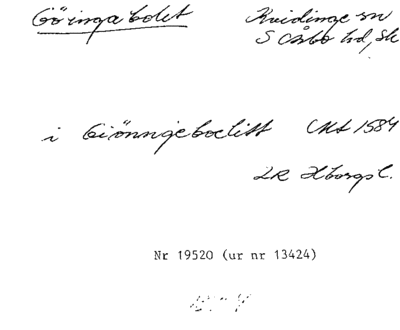 Göringabolet Kvidinge sn
S Åsbo hd, Sk
i Giönnge boelitt Mt 1584
LR Hborgsl.
Nr 19520 (ur nr 13424)